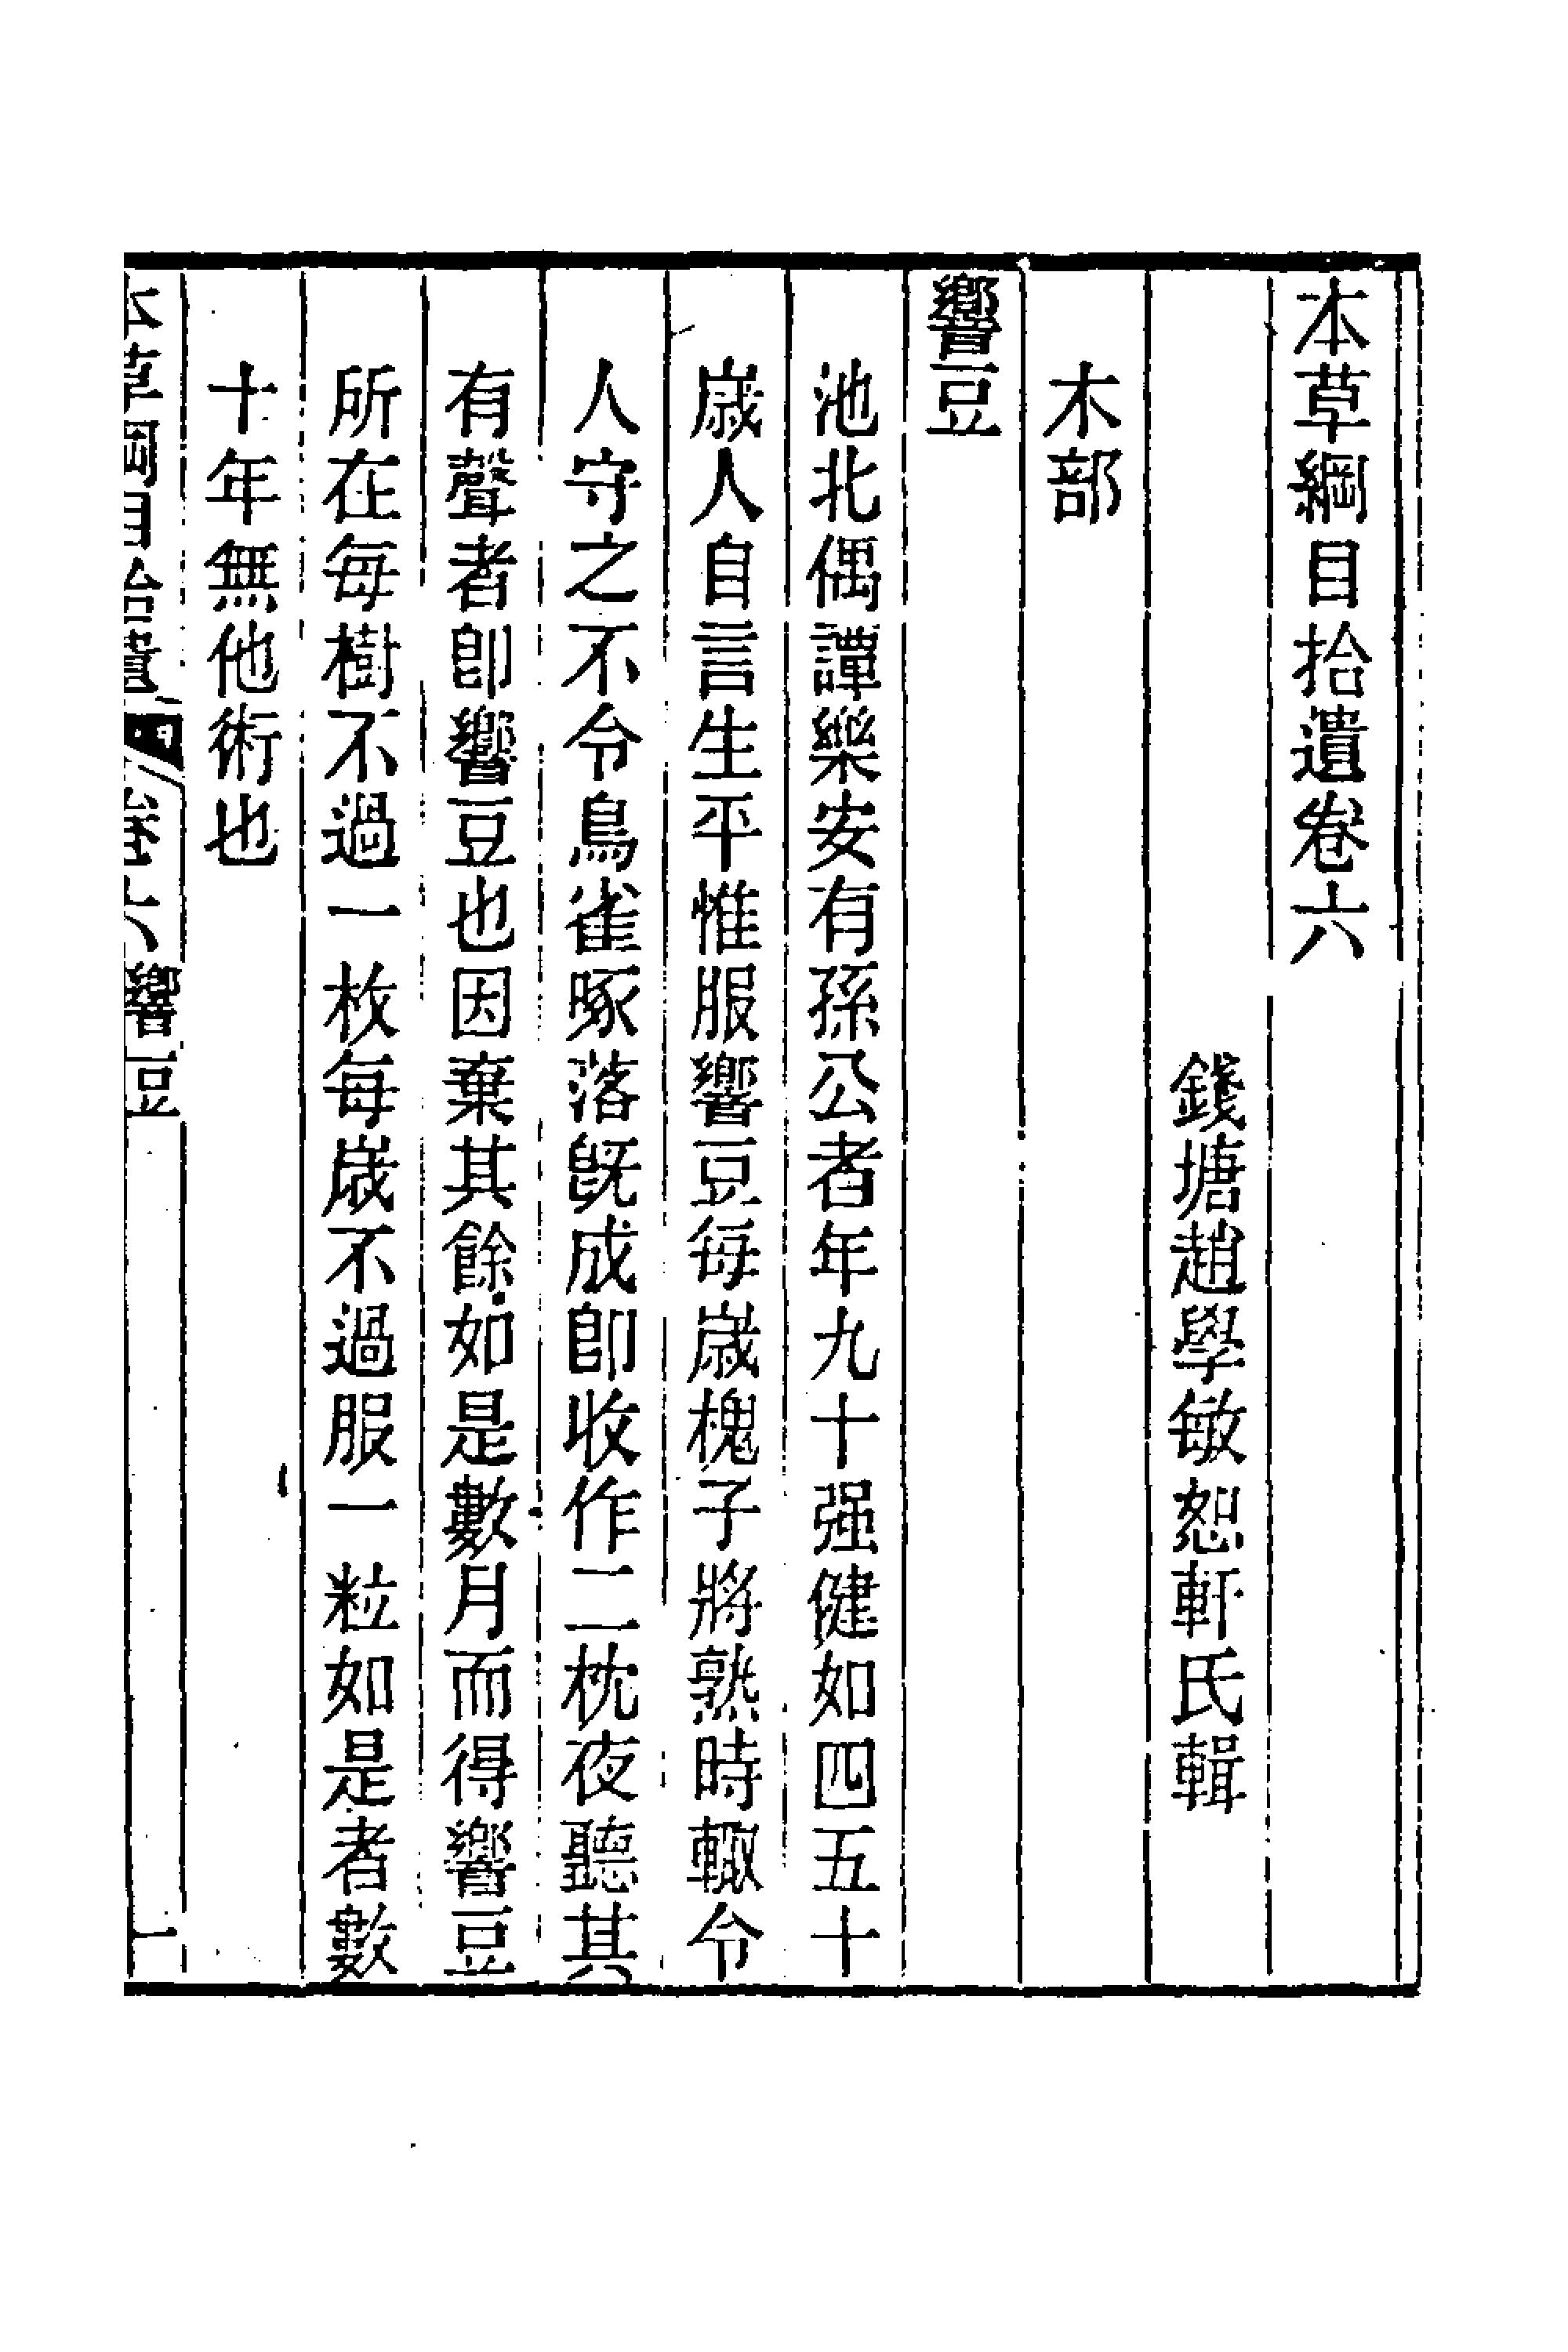 本草綱目拾遺卷六
錢塘趙學敏恕軒氏輯
木部
響豆
池北偶譚樂安有孫公者年九十强健如四五十
歲人自言生平惟服響豆每歲槐子將熟時輙令
人守之不令鳥雀啄落旣成卽收作二枕夜聽其
有聲者卽響豆也因棄其餘如是數月而得響豆
所在每樹不過一枚每歲不過服一粒如是者數
十年無他術也
本草綱目拾遺 卷六 響豆 一